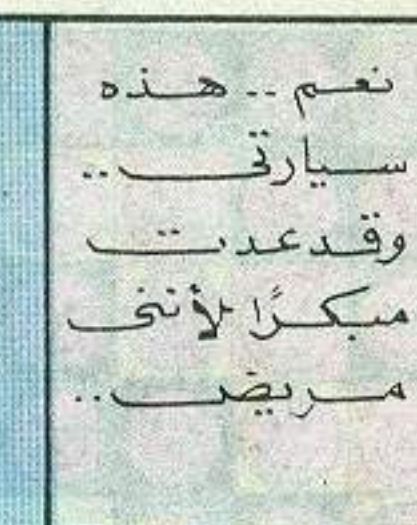 نعم .. هذه
سيارتى ..
وقد عدت
مبكرًا لأننى
مريض ..